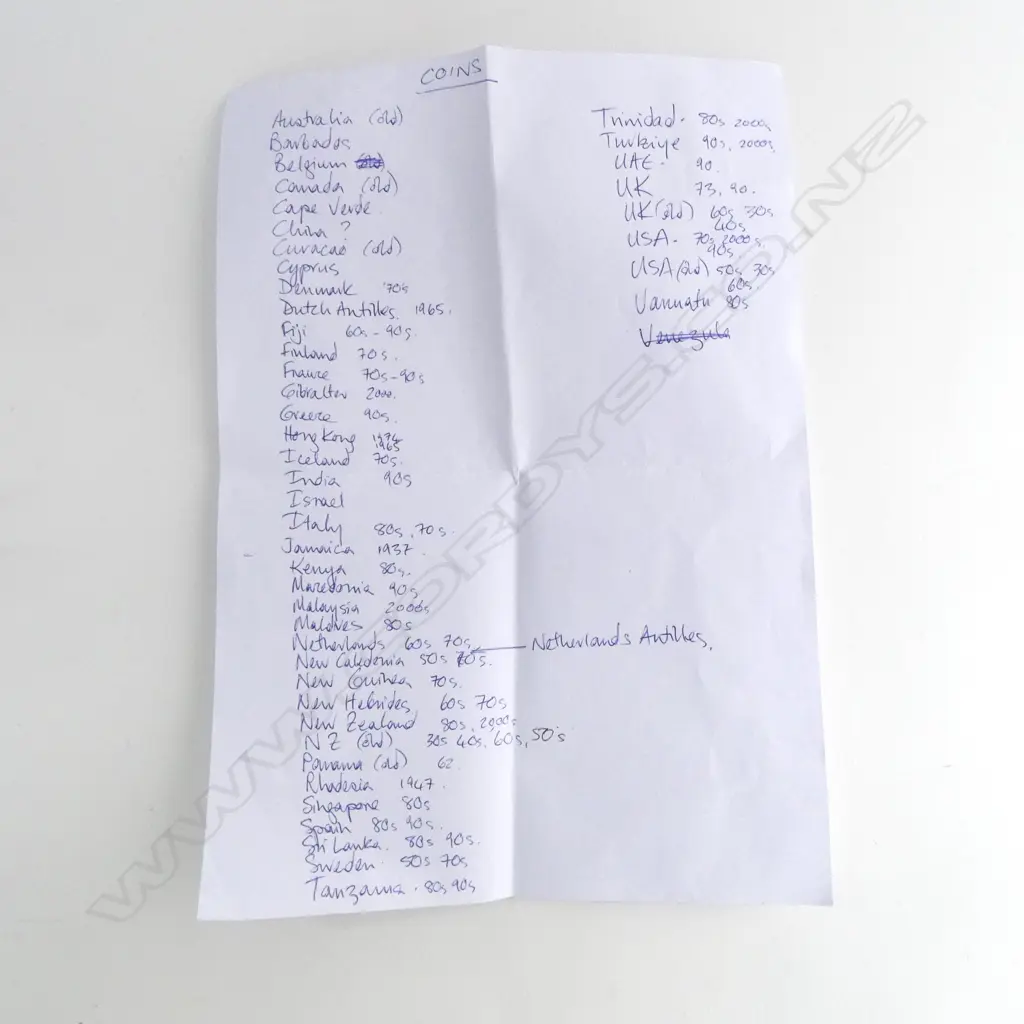 COINS
Australia (old)
Barbados
Belgium (old)
Canada (old)
Cape Verde.
China ?
Curacao (old)
Cyprus
Denmark '70s
Dutch Antilles. 1965.
Fiji 60s - 90s.
Finland 70s.
France 70s-90s
Gibralter 2000.
Greece 90s.
Hong Kong 1974 1965
Iceland 70s.
India 90s
Israel
Italy 80s, 70s.
Jamaica 1937.
Kenya 80s.
Macedonia 90s
Malaysia 2000s
Maldives 80s
Netherlands 60s 70s Netherlands Antilles.
New Caledonia 50s 60s.
New Guinea 70s.
New Hebrides 60s 70s
New Zealand 80s, 2000s
NZ (old) 30s 40s, 60s, 50's
Panama (old) 62.
Rhodesia 1947.
Singapore 80s
Spain 80s 90s.
Sri Lanka. 80s 90s.
Sweden. 50s 70s
Tanzania. 80s 90s
Trinidad. 80s 2000s
Turkiye 90s, 2000s
UAE. 90.
UK 73, 90.
UK (old) 60s 30s
40s
USA. 70s 2000s,
90s.
USA (old) 50s 30s
60s
Vanuatu 80s
Venezula
WWW.CORDYS.CO.NZ